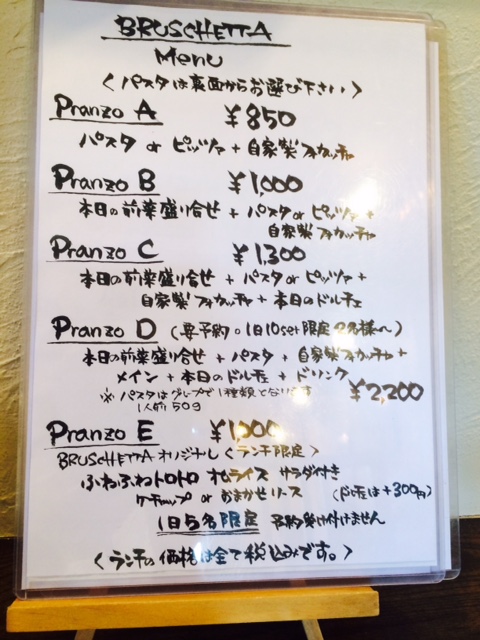 BRUSCHETTA
Menu
〈パスタは裏面からお選び下さい〉
Pranzo A ¥850
パスタ or ピッツァ + 自家製フォカッチャ
Pranzo B ¥1,000
本日の前菜盛り合せ + パスタ or ピッツァ +
自家製フォカッチャ
Pranzo C ¥1,300
本日の前菜盛り合せ + パスタ or ピッツァ +
自家製フォカッチャ + 本日のドルチェ
Pranzo D (要予約。1日10set限定 2名様〜)
本日の前菜盛り合せ + パスタ + 自家製フォカッチャ +
メイン + 本日のドルチェ + ドリンク
※パスタはグループで1種類となります ¥2,200
1人前50g
Pranzo E ¥1,000
BRUSCHETTAオリジナル〈ランチ限定〉
ふわふわトロトロ オムライス サラダ付き
ケチャップ or おまかせソース (ドルチェは+300円)
1日5名限定 予約受け付けません
〈ランチの価格は全て税込みです。〉